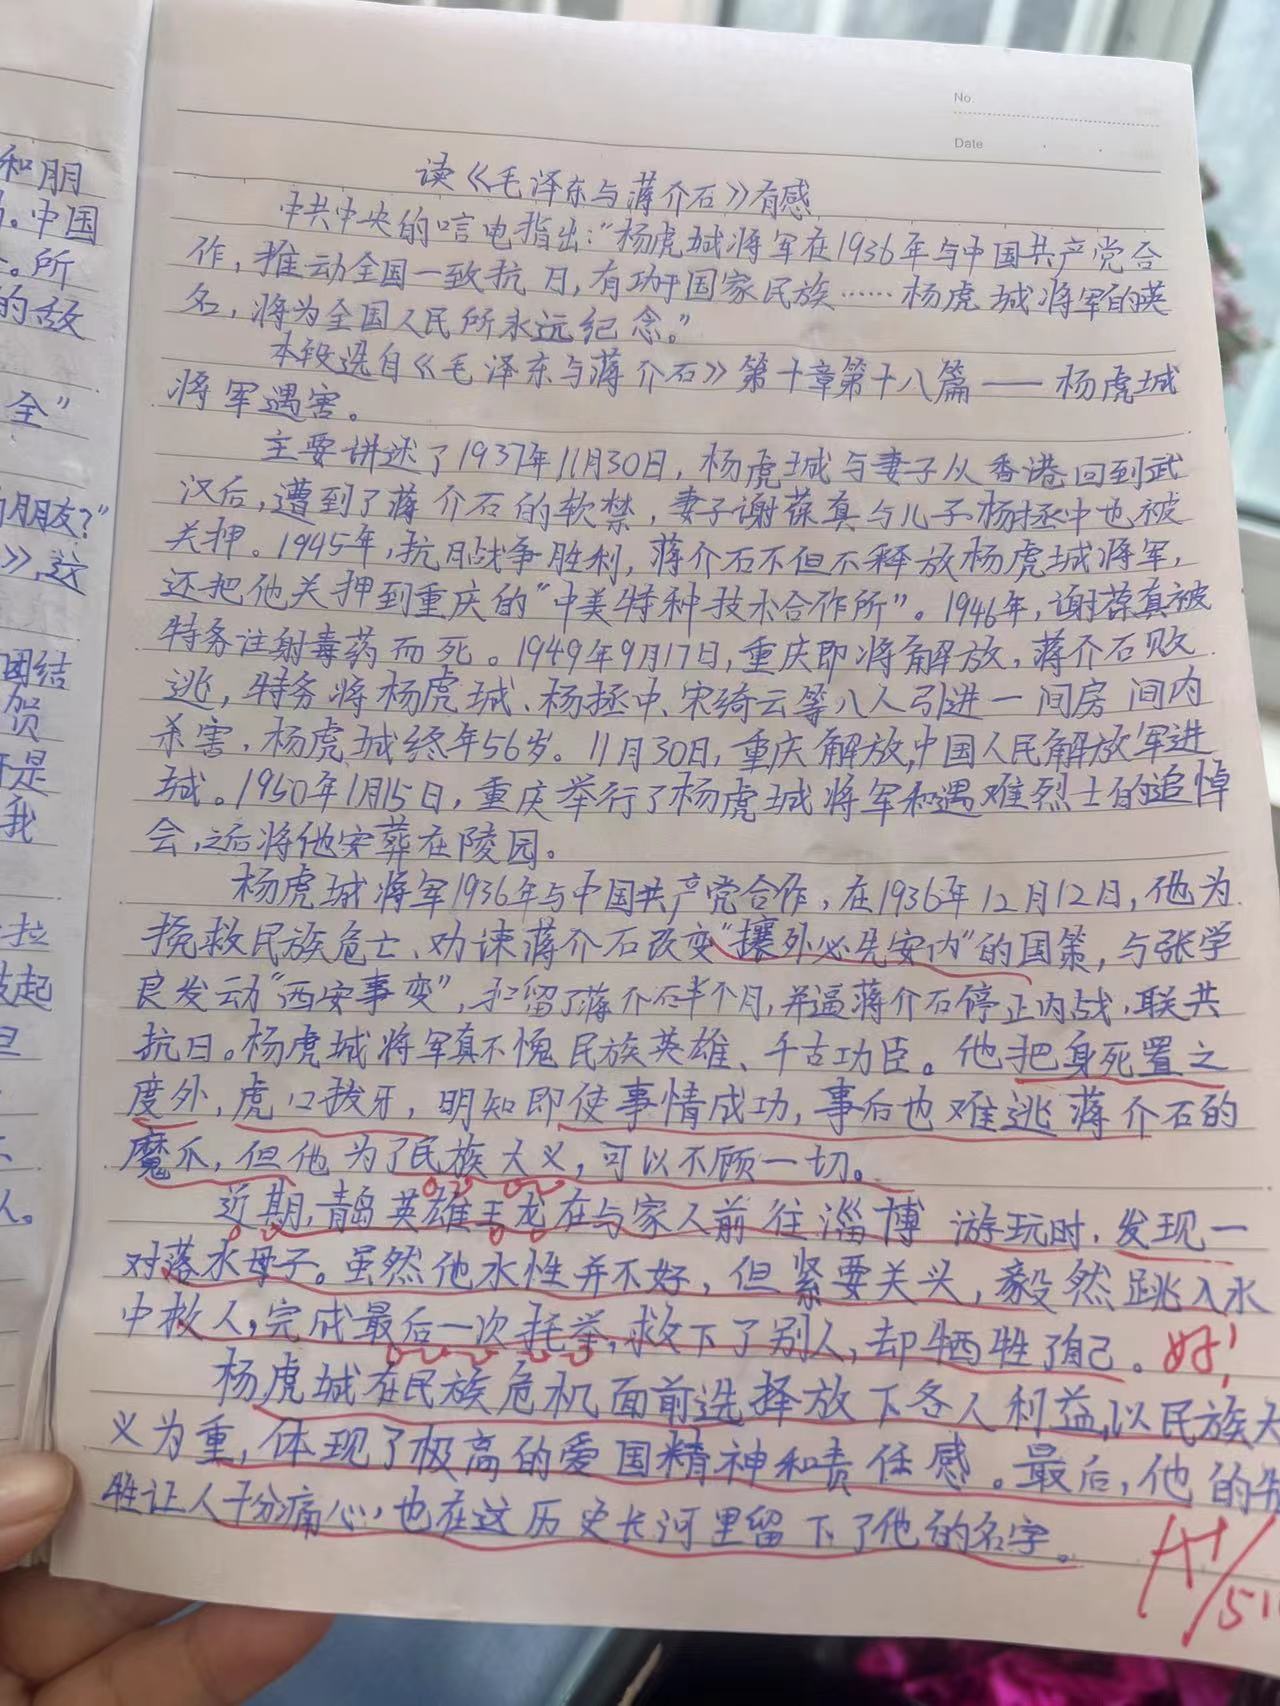 和朋
中国
所
的敌
全”
的朋友?”
》,这
团结
贺
于是
我
拉
起
No.
Date
读《毛泽东与蒋介石》有感
中共中央的唁电指出:“杨虎城将军在1936年与中国共产党合
作,推动全国一致抗日,有功于国家民族……杨虎城将军的英
名,将为全国人民所永远纪念。”
本段选自《毛泽东与蒋介石》第十章第十八篇——杨虎城
将军遇害。
主要讲述了1937年11月30日,杨虎城与妻子从香港回到武
汉后,遭到了蒋介石的软禁,妻子谢葆真与儿子杨拯中也被
关押。1945年,抗日战争胜利,蒋介石不但不释放杨虎城将军,
还把他关押到重庆的“中美特种技术合作所”。1946年,谢葆真被
特务注射毒药而死。1949年9月17日,重庆即将解放,蒋介石败
逃,特务将杨虎城、杨拯中、宋绮云等八人引进一间房间内
杀害,杨虎城终年56岁。11月30日,重庆解放,中国人民解放军进
城。1950年1月15日,重庆举行了杨虎城将军和遇难烈士的追悼
会,之后将他安葬在陵园。
杨虎城将军1936年与中国共产党合作,在1936年12月12日,他为
挽救民族危亡、劝谏蒋介石改变“攘外必先安内”的国策,与张学
良发动“西安事变”,扣留了蒋介石半个月,并逼蒋介石停止内战,联共
抗日。杨虎城将军真不愧民族英雄、千古功臣。他把身死置之
度外,虎口拔牙,明知即使事情成功,事后也难逃蒋介石的
魔爪,但他为了民族大义,可以不顾一切。
近期,青岛英雄王龙在与家人前往淄博游玩时,发现一
对落水母子。虽然他水性并不好,但紧要关头,毅然跳入水
中救人,完成最后一次托举,救下了别人,却牺牲了自己。好!
杨虎城在民族危机面前选择放下各人利益,以民族大
义为重,体现了极高的爱国精神和责任感。最后,他的牺
牲让人十分痛心,也在这历史长河里留下了他的名字。
A+/